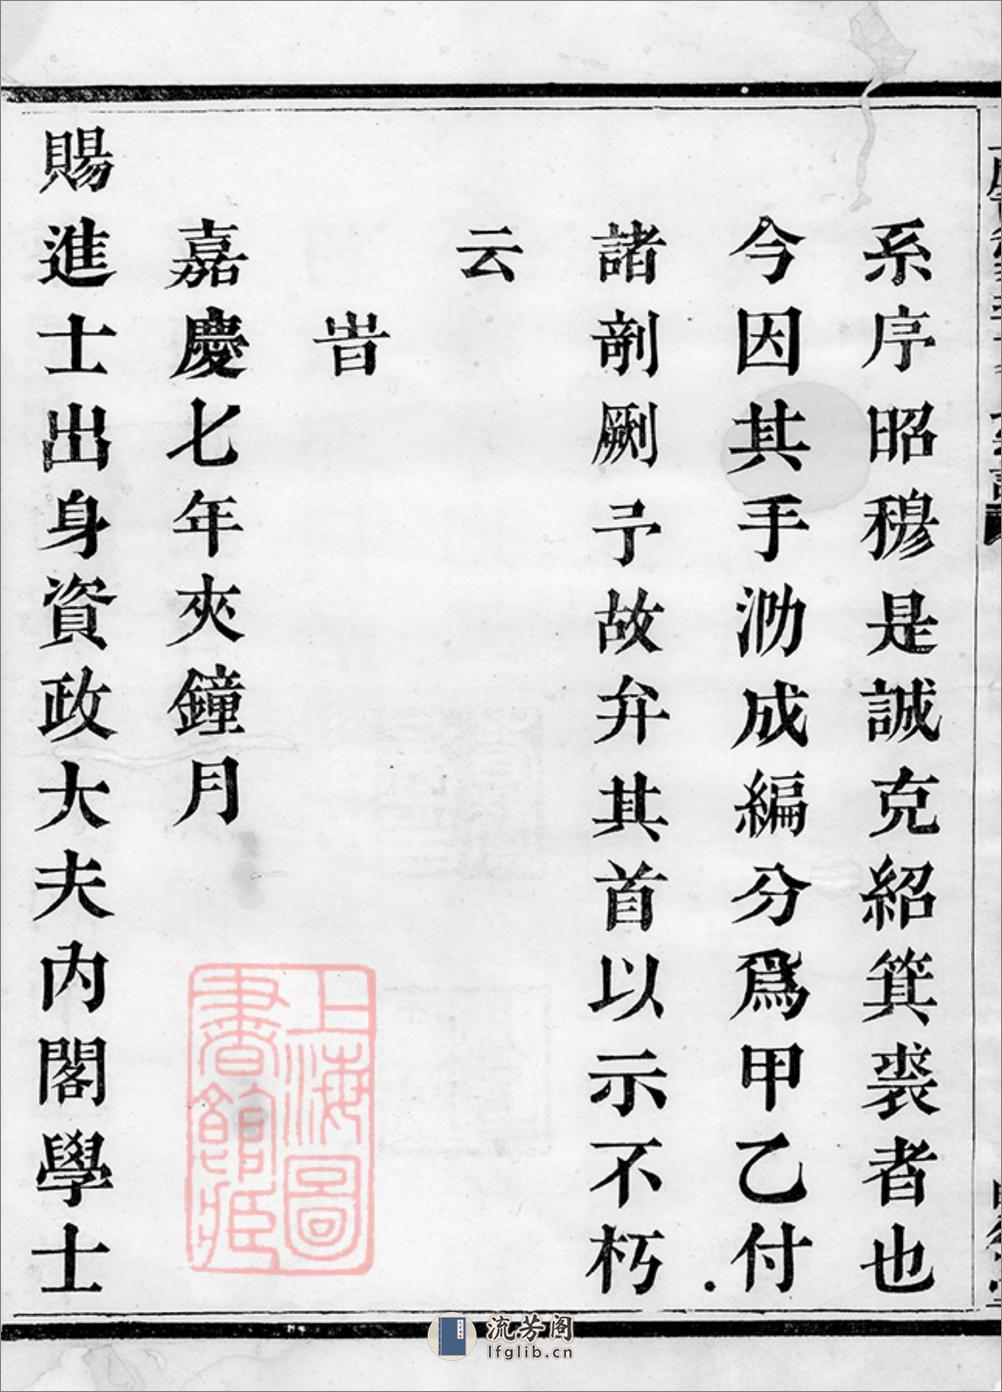 系序昭穆是誠克紹箕裘者也
今因其手泐成編分爲甲乙付
諸剞劂予故弁其首以示不朽
云
旹
嘉慶七年夾鐘月
賜進士出身資政大夫内閣學士
上海圖
書館藏
流芳阁
lfglib.cn